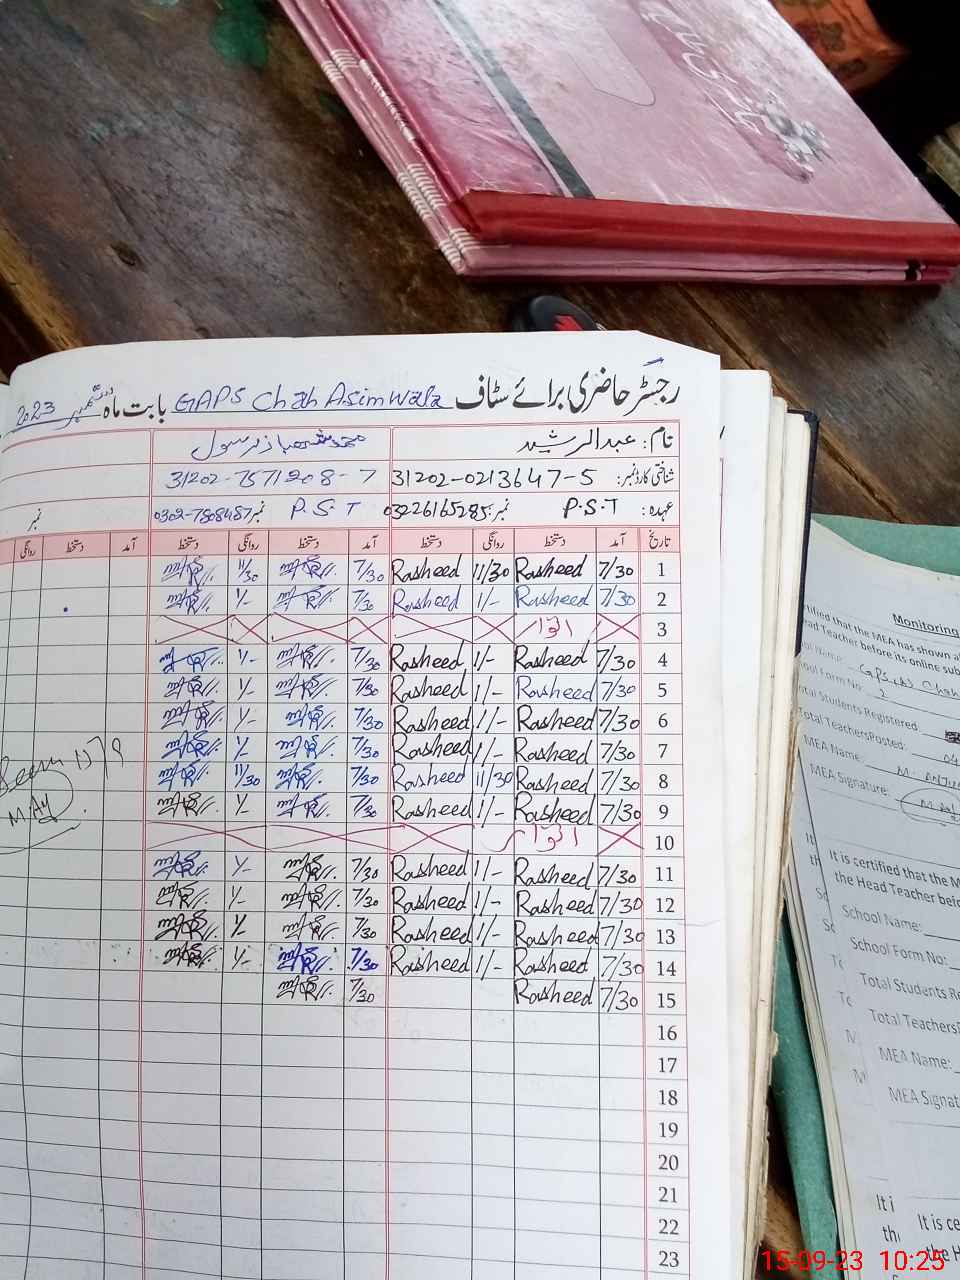 رجسٹر حاضری برائے سٹاف GAPS Chah Asim Wala بابت ماہ ستمبر 2023
نام: عبدالرشید محمد شہباز رسول
شناختی کارڈ نمبر: 31202-0213647-5 31202-7571208-7
عہدہ: P.S.T نمبر: 03226165285 P.S.T نمبر 0302-7808487 نمبر
تاریخ آمد دستخط روانگی دستخط آمد دستخط روانگی دستخط آمد دستخط روانگی
1 7/30 Rasheed 11/30 Rasheed 7/30 11/30
2 7/30 Rasheed 1/- Rasheed 7/30 1/-
3 اتوار
4 7/30 Rasheed 1/- Rasheed 7/30 1/-
5 7/30 Rasheed 1/- Rasheed 7/30 1/-
6 7/30 Rasheed 1/- Rasheed 7/30 1/-
7 7/30 Rasheed 1/- Rasheed 7/30 1/-
8 7/30 Rasheed 11/30 Rasheed 7/30 11/30
9 7/30 Rasheed 1/- Rasheed 7/30 1/-
10 اتوار
11 7/30 Rasheed 1/- Rasheed 7/30 1/-
12 7/30 Rasheed 1/- Rasheed 7/30 1/-
13 7/30 Rasheed 1/- Rasheed 7/30 1/-
14 7/30 Rasheed 1/- Rasheed 7/30 1/-
15 7/30 Rasheed 7/30
16
17
18
19
20
21
22
23
Seen
Monitoring
ertified that the MEA has shown a
ead Teacher before its online sub
Name
ool Form No: 2
otal Students Registered:
Total TeachersPosted: 04
MEA Name:
MEA Signature:
It is certified that the M
the Head Teacher befo
School Name:
School Form No:
Total Students Re
Total TeachersP
MEA Name:
MEA Signat
It is ce
the H
15-09-23 10:25